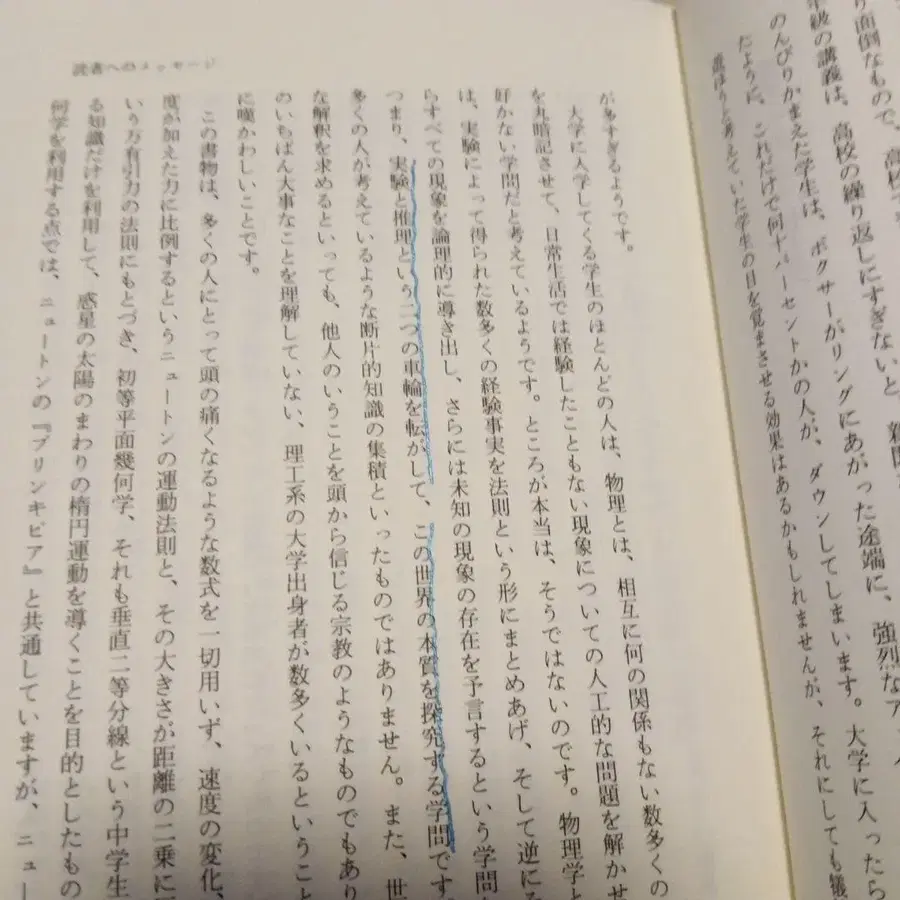 り面倒なもので、高校で
年級の講義は、高校の繰り返しにすぎないと、新聞
のんびりかまえた学生は、ボクサーがリングにあがった途端に、強烈なア
たように、これだけで何十パーセントかの人が、ダウンしてしまいます。大学に入ったら
遊ぼうと考えていた学生の目を覚まさせる効果はあるかもしれませんが、それにしても犠
読者へのメッセージ
が多すぎるようです。
大学に入学してくる学生のほとんどの人は、物理とは、相互に何の関係もない数多くの
を丸暗記させて、日常生活では経験したこともない現象についての人工的な問題を解かせ
好かない学問だと考えているようです。ところが本当は、そうではないのです。物理学と
は、実験によって得られた数多くの経験事実を法則という形にまとめあげ、そして逆に
らすべての現象を論理的に導き出し、さらには未知の現象の存在を予言するという学問
つまり、実験と推理という二つの車輪を転がして、この世界の本質を探究する学問です
多くの人が考えているような断片的知識の集積といったものではありません。また、世
な解釈を求めるといっても、他人のいうことを頭から信じる宗教のようなものでもあり
のいちばん大事なことを理解していない、理工系の大学出身者が数多くいるということ
に嘆かわしいことです。
この書物は、多くの人にとって頭の痛くなるような数式を一切用いず、速度の変化、
度が加えた力に比例するというニュートンの運動法則と、その大きさが距離の二乗に
いう万有引力の法則にもとづき、初等平面幾何学、それも垂直二等分線という中学生
る知識だけを利用して、惑星の太陽のまわりの楕円運動を導くことを目的としたもの
何学を利用する点では、ニュートンの『プリンキピア』と共通していますが、ニュー